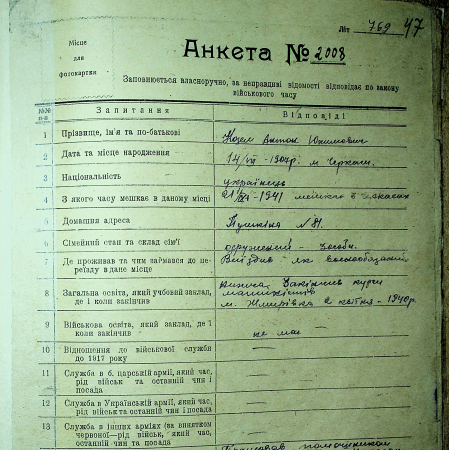 Літ 769 47
Місце
для
фотокартки
Анкета № 2008
Заповнюється власноручно, за неправдиві відомості відповідає по закону
військового часу
№№
п-п
Запитання
Відповіді
1 Прізвище, ім'я та по-батькові
Антон Юхимович
2 Дата та місце народження
14/VII - 1904р. м. Черкаси.
3 Національність
українець
4 З якого часу мешкає в даному місці
1941 мешкає в Черкасах
5 Домашня адреса
Пушкіна № 81.
6 Сімейний стан та склад сім'ї
одружений -
7 Де проживав та чим займався до пе-
реїзду в дане місце
Виїздив - як
8 Загальна освіта, який учбовий заклад,
де і коли закінчив
Закінчив курси
машиністів
м. Жмеринка 2 квітня - 1940р.
9 Військова освіта, який заклад, де і
коли закінчив
не має
10 Відношення до військової служби
до 1917 року
11 Служба в б. царській армії, який час,
рід військ та останній чин і
посада
12 Служба в Українській армії, який час,
рід військ та останній чин і посада
13 Служба в інших арміях (за винятком
червоної—рід військ, який час,
останній чин та посада
Працював помошником